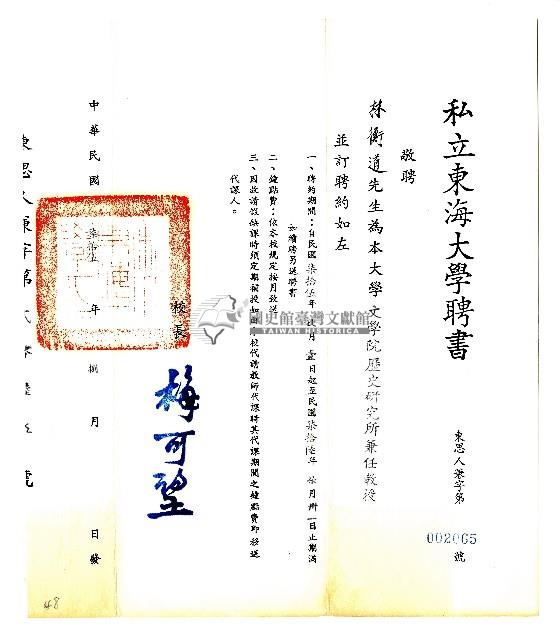 私立東海大學聘書
東思人兼字第
002065
號
敬聘
林衡道先生為本大學文學院歷史研究所兼任教授
並訂聘約如左
一、聘約期間：自民國柒拾伍年 月壹日起至民國柒拾陸年 月卅一日止期滿
如續聘另送聘書
二、鐘點費：依本校規定按月致送
三、因故請假缺課時須定期補授如由本校代請教師代課時其代課期間之鐘點費即移送
代課人。
校長
梅可望
中華民國柒拾伍年捌月 日發
國史館臺灣文獻館
TAIWAN HISTORICA
48